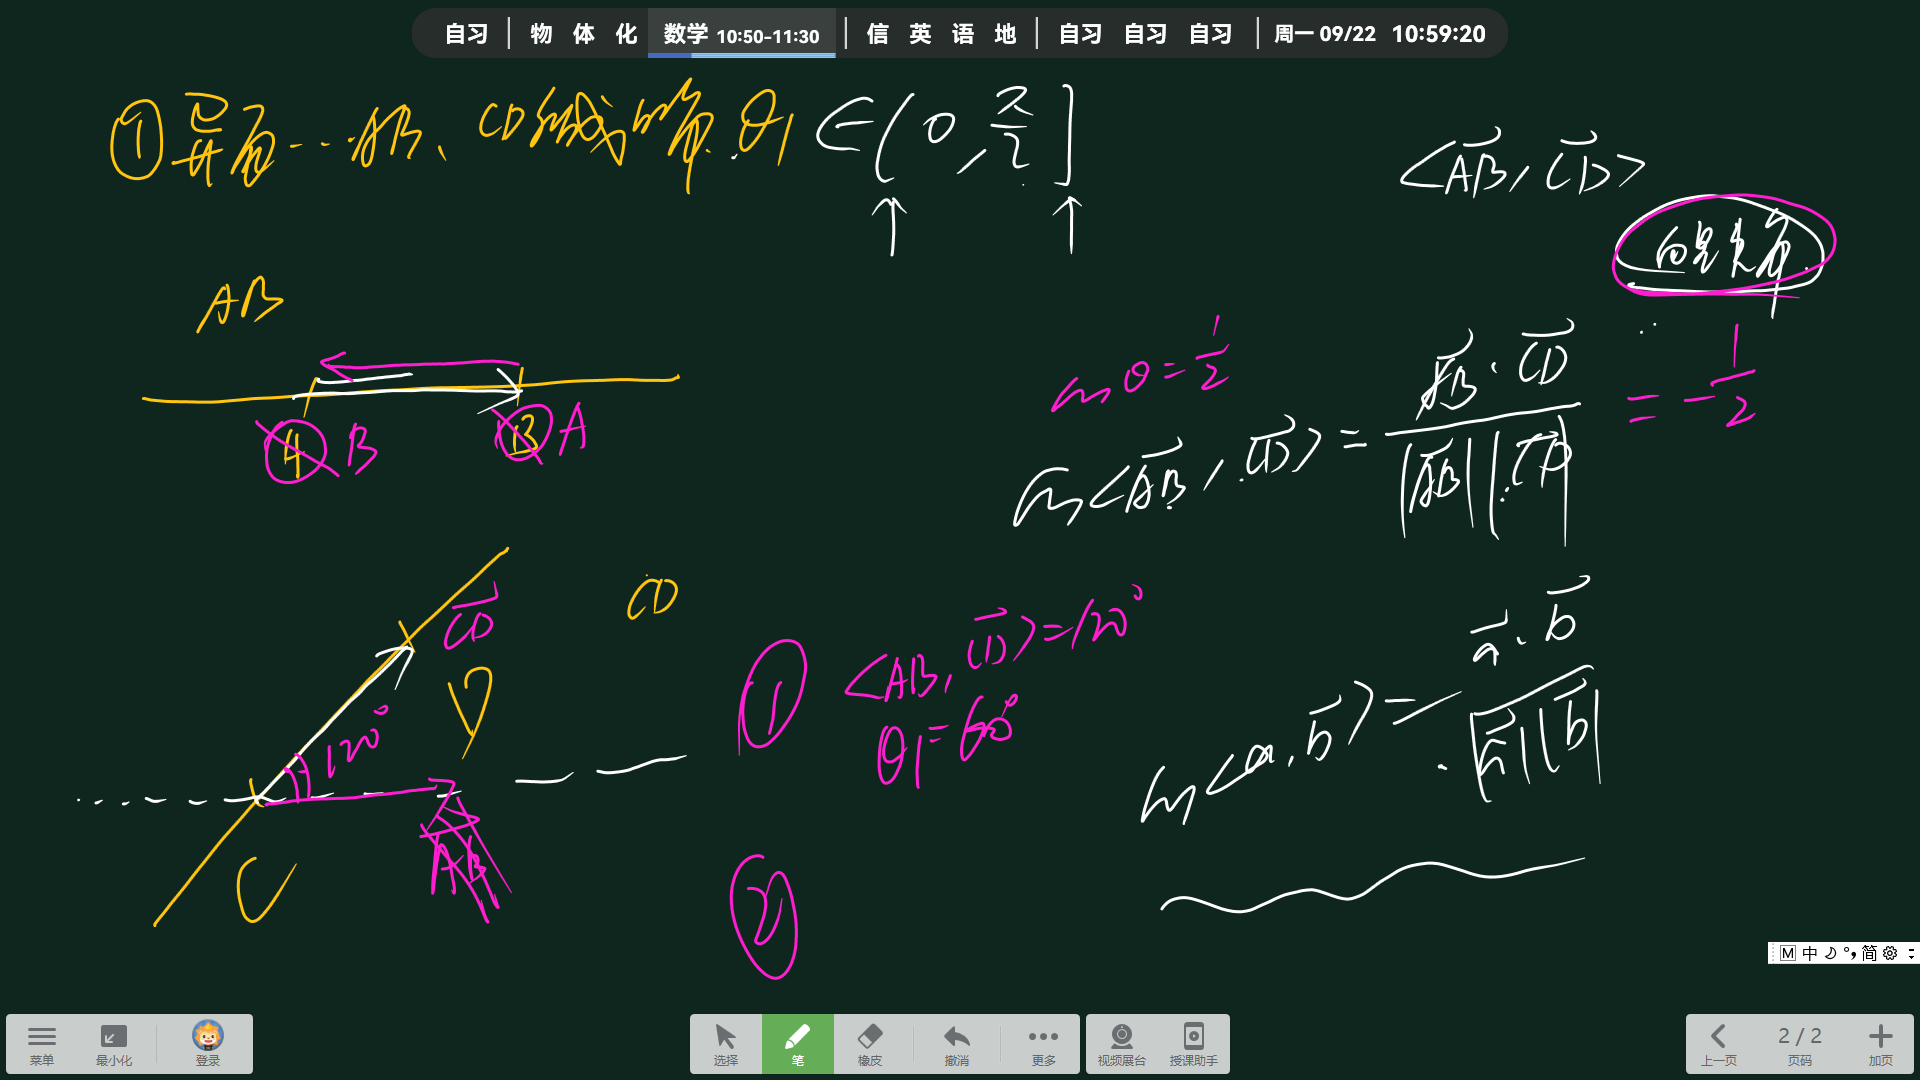 自习 | 物 体 化 数学 10:50-11:30 | 信 英 语 地 | 自习 自习 自习 | 周一 09/22 10:59:20
① 异面…AB、CD所成的角.θ₁ ∈(0, π/2]
<AB, CD>
向量夹角
AB
A B
B A
cosθ = 1/2
cos<AB, CD> = AB·CD / |AB||CD| = -1/2
CD
CD
D
120°
AB
C
① <AB, CD> = 120°
θ₁ = 60°
cos<a, b> = a·b / |a||b|
②
M 中 简
菜单 最小化 登录 选择 笔 橡皮 撤消 更多 视频展台 授课助手 上一页 2 / 2 页码 加页